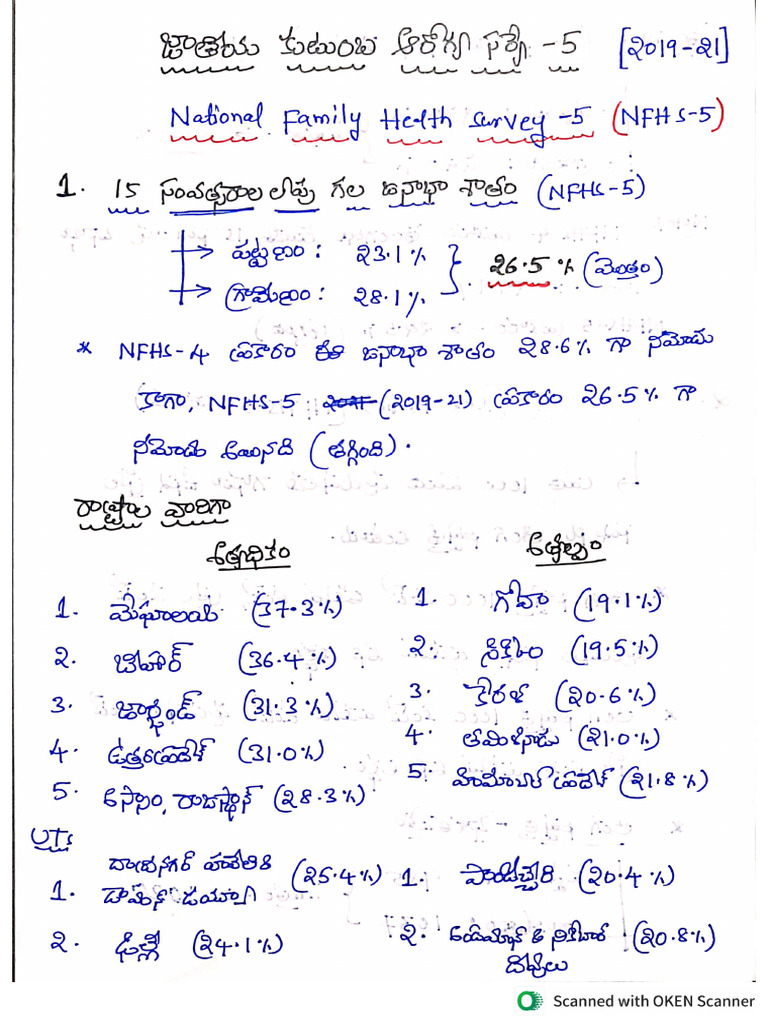 జాతీయ కుటుంబ ఆరోగ్య సర్వే -5 [2019-21]
National Family Health Survey -5 (NFHS-5)
1. 15 సంవత్సరాల లోపు గల జనాభా శాతం (NFHS-5)
→ పట్టణం : 23.1%
26.5% (మొత్తం)
→ గ్రామీణం : 28.1%
* NFHS-4 ప్రకారం ఈ జనాభా శాతం 28.6% గా నమోదు
కాగా, NFHS-5 (2019-21) ప్రకారం 26.5% గా
నమోదు అయినది (తగ్గింది).
రాష్ట్రాల వారీగా
అత్యధికం అత్యల్పం
1. మేఘాలయ (37.3%) 1. గోవా (19.1%)
2. బీహార్ (36.4%) 2. సిక్కిం (19.5%)
3. జార్ఖండ్ (31.3%) 3. కేరళ (20.6%)
4. ఉత్తరప్రదేశ్ (31.0%) 4. తమిళనాడు (21.0%)
5. అస్సాం, రాజస్థాన్ (28.3%) 5. హిమాచల్ ప్రదేశ్ (21.8%)
UTs
1. దాద్రానగర్ హవేలి & డామన్ డయ్యూ (25.4%) 1. పాండిచ్చేరి (20.4%)
2. ఢిల్లీ (24.1%) 2. అండమాన్ & నికోబార్ దీవులు (20.8%)
Scanned with OKEN Scanner